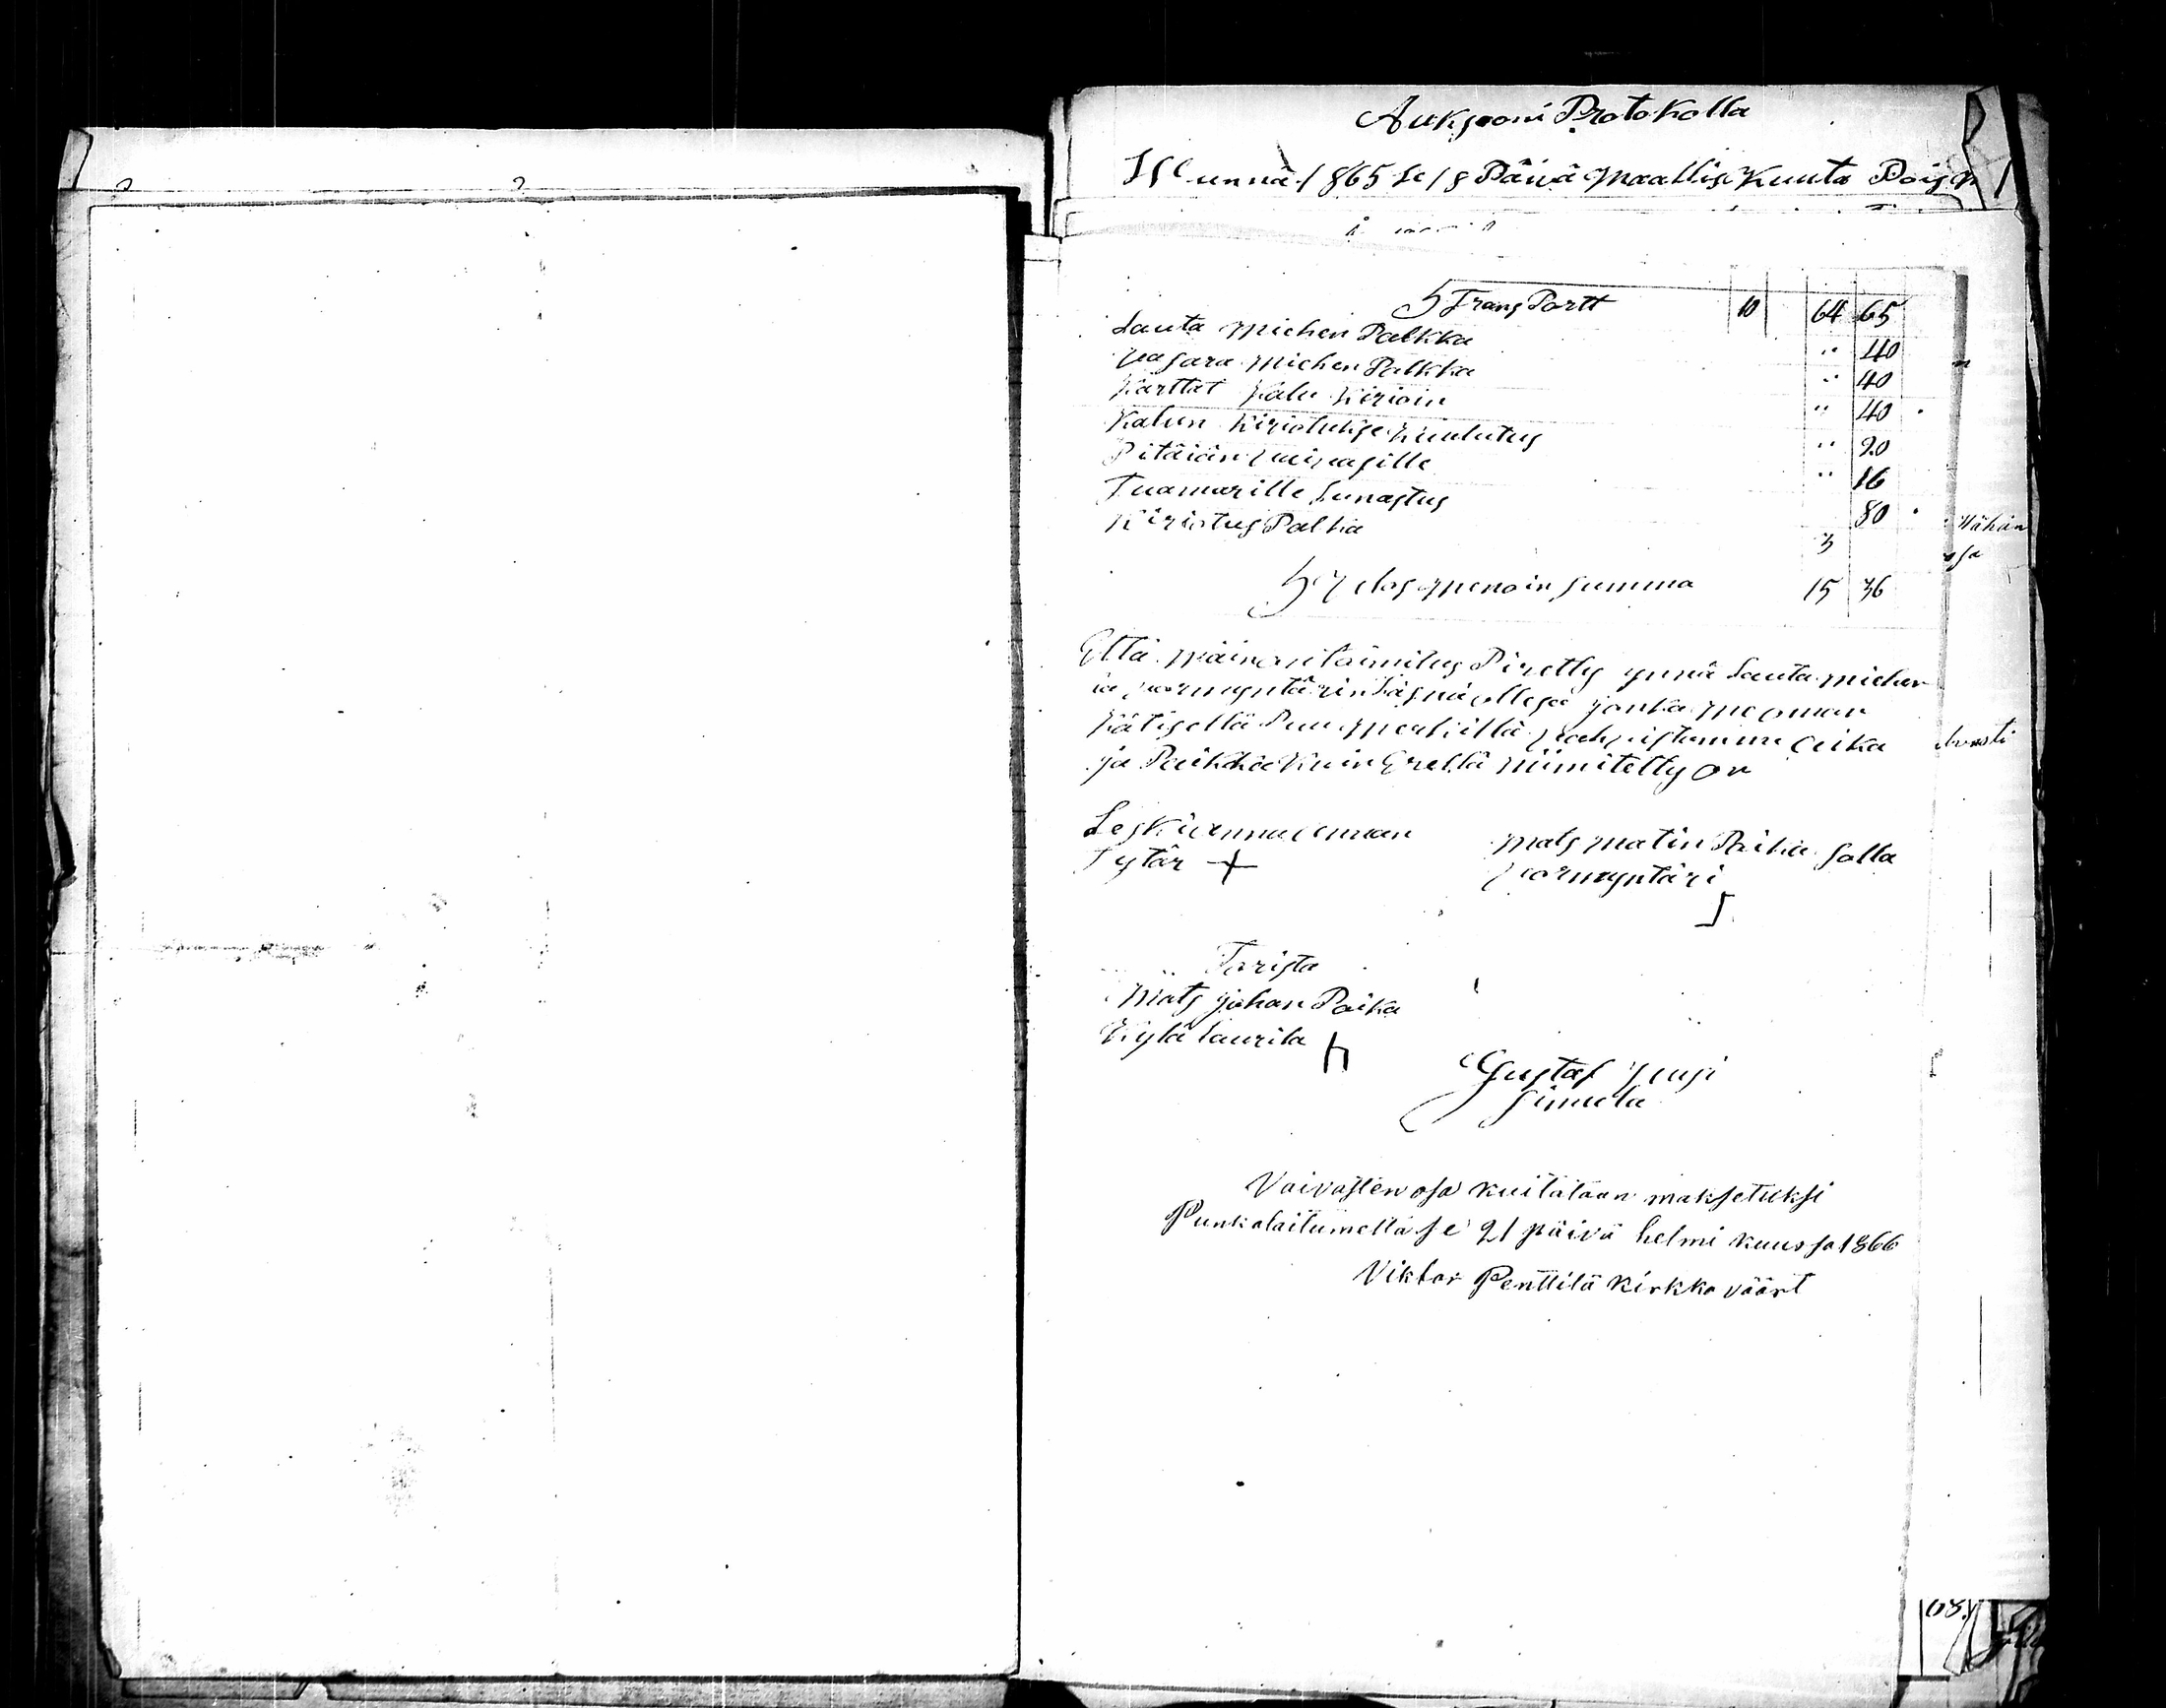 Auksooni Protokolla
Wunna 1865 Se 18 Päivä Maallis Kuuta Pois
Transportt 10 64 65
Lauta miehen Palkka " 40
Vasara miehen Palkka " 40
Karttat Kalu Kirioin " 40
Kalun Kirioituxse Kuulutus " 20
Pitäiän Vaivasille " 16
Tuamarille Lunastus 80
Kirioitus Palka 3
Ulos menoin Summa 15 36
Että näin on toimitus Piretty ynnä Lauta miehen
ia vormyntärin Läsnä ollesa jonka me oman
kätisellä Puu merkillä vahvistamme Aika
ja Paikka Kuin Erellä niimitetty on
Leski Anna
Tytär +
mats matin Poika Salla
vormyntäri
Torista
Mats johan Poika
Kylä Laurila
Gustaf Jusi
Simula
Vaivasten osa kuitataan maksetuksi
Punkalaitumella se 21 päivä helmi kuussa 1866
Viktor Penttilä kirkko väärt
Wähän
osa
68